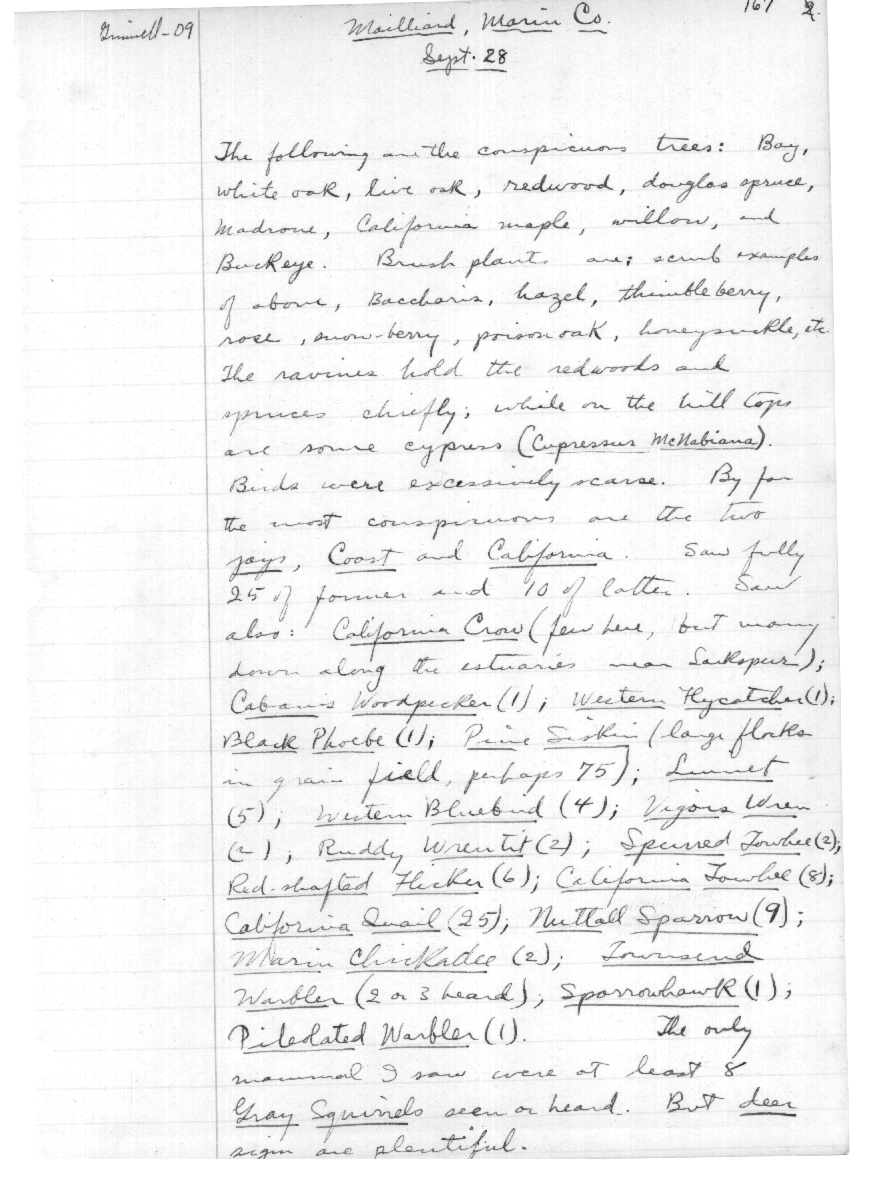 Grinnell-09
Mailliard, Marin Co.
167 2.
Sept. 28
The following are the conspicuous trees: Bay,
white oak, live oak, redwood, douglas spruce,
Madrone, California maple, willow, and
Buckeye. Brush plants are; scrub examples
of above, Baccharis, hazel, thimble berry,
rose, snow-berry, poison oak, honeysuckle, etc.
The ravines hold the redwoods and
spruces chiefly; while on the hill tops
are some cypress (Cupressus McNabiana).
Birds were excessively scarse. By far
the most conspicuous are the two
jays, Coast and California. Saw fully
25 of former and 10 of latter. Saw
also: California Crow (few here, but many
down along the estuaries near Larkspur);
Cabanis Woodpecker (1); Western Flycatcher (1);
Black Phoebe (1); Pine Siskin (large flocks
in grain field, perhaps 75); Linnet
(5); Western Bluebird (4); Vigors Wren
(2); Ruddy Wrentit (2); Spurred Towhee (2);
Red-shafted Flicker (6); California Towhee (8);
California Quail (25); Nuttall Sparrow (9);
Marin Chickadee (2); Townsend
Warbler (2 or 3 heard); Sparrowhawk (1);
Pileolated Warbler (1). The only
mammal I saw were at least 8
Gray Squirrels seen or heard. But deer
sign are plentiful.